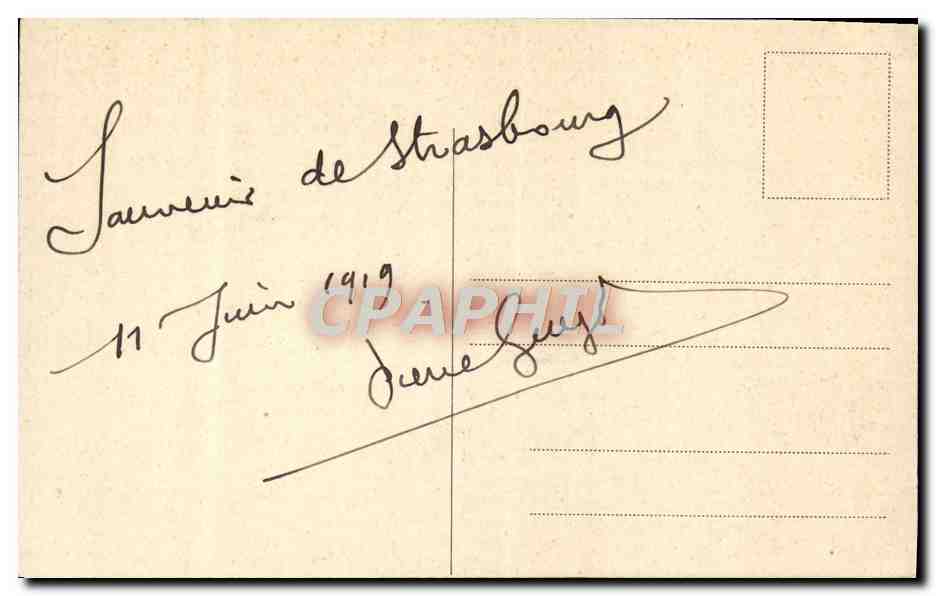 Souvenir de Strasbourg
11 Juin 1919
CPAPHIL
Pierre